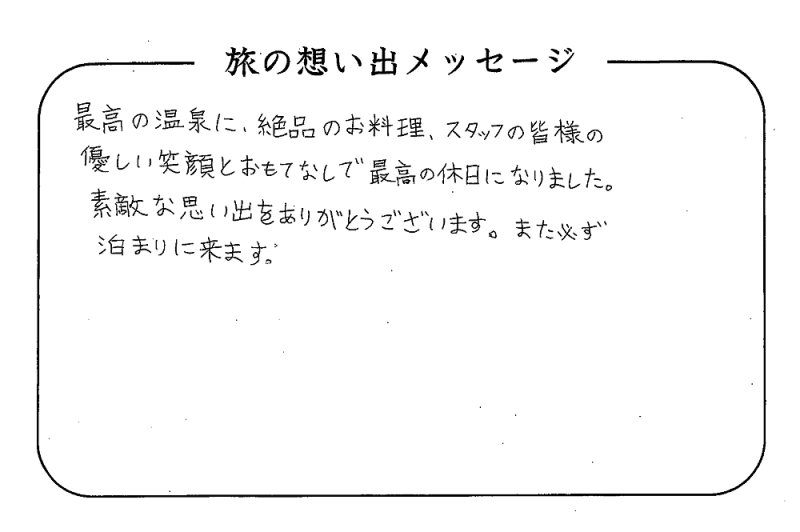 旅の想い出メッセージ
最高の温泉に、絶品のお料理、スタッフの皆様の
優しい笑顔とおもてなしで最高の休日になりました。
素敵な思い出をありがとうございます。また必ず
泊まりに来ます。